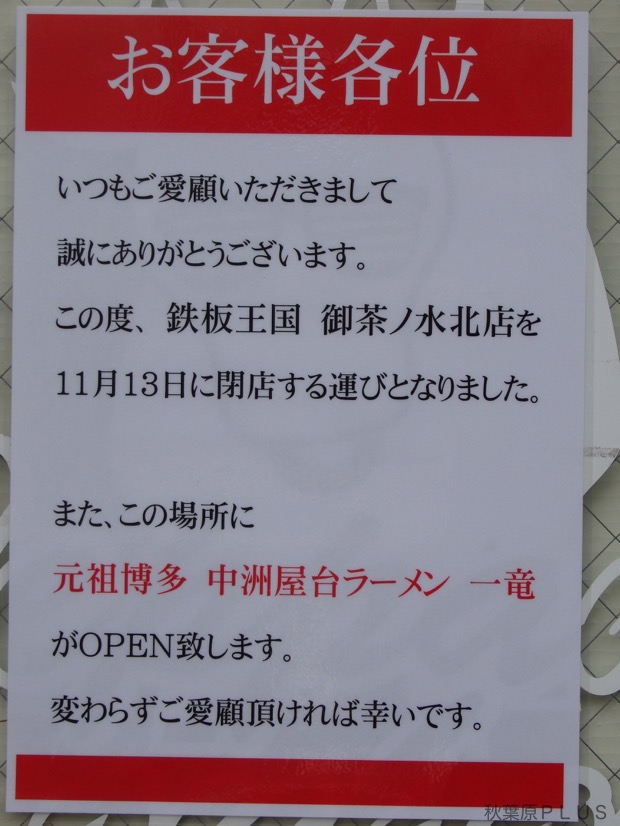 お客様各位
いつもご愛顧いただきまして
誠にありがとうございます。
この度、鉄板王国 御茶ノ水北店を
11月13日に閉店する運びとなりました。
また、この場所に
元祖博多 中洲屋台ラーメン 一竜
がOPEN致します。
変わらずご愛顧頂ければ幸いです。
秋葉原PLUS